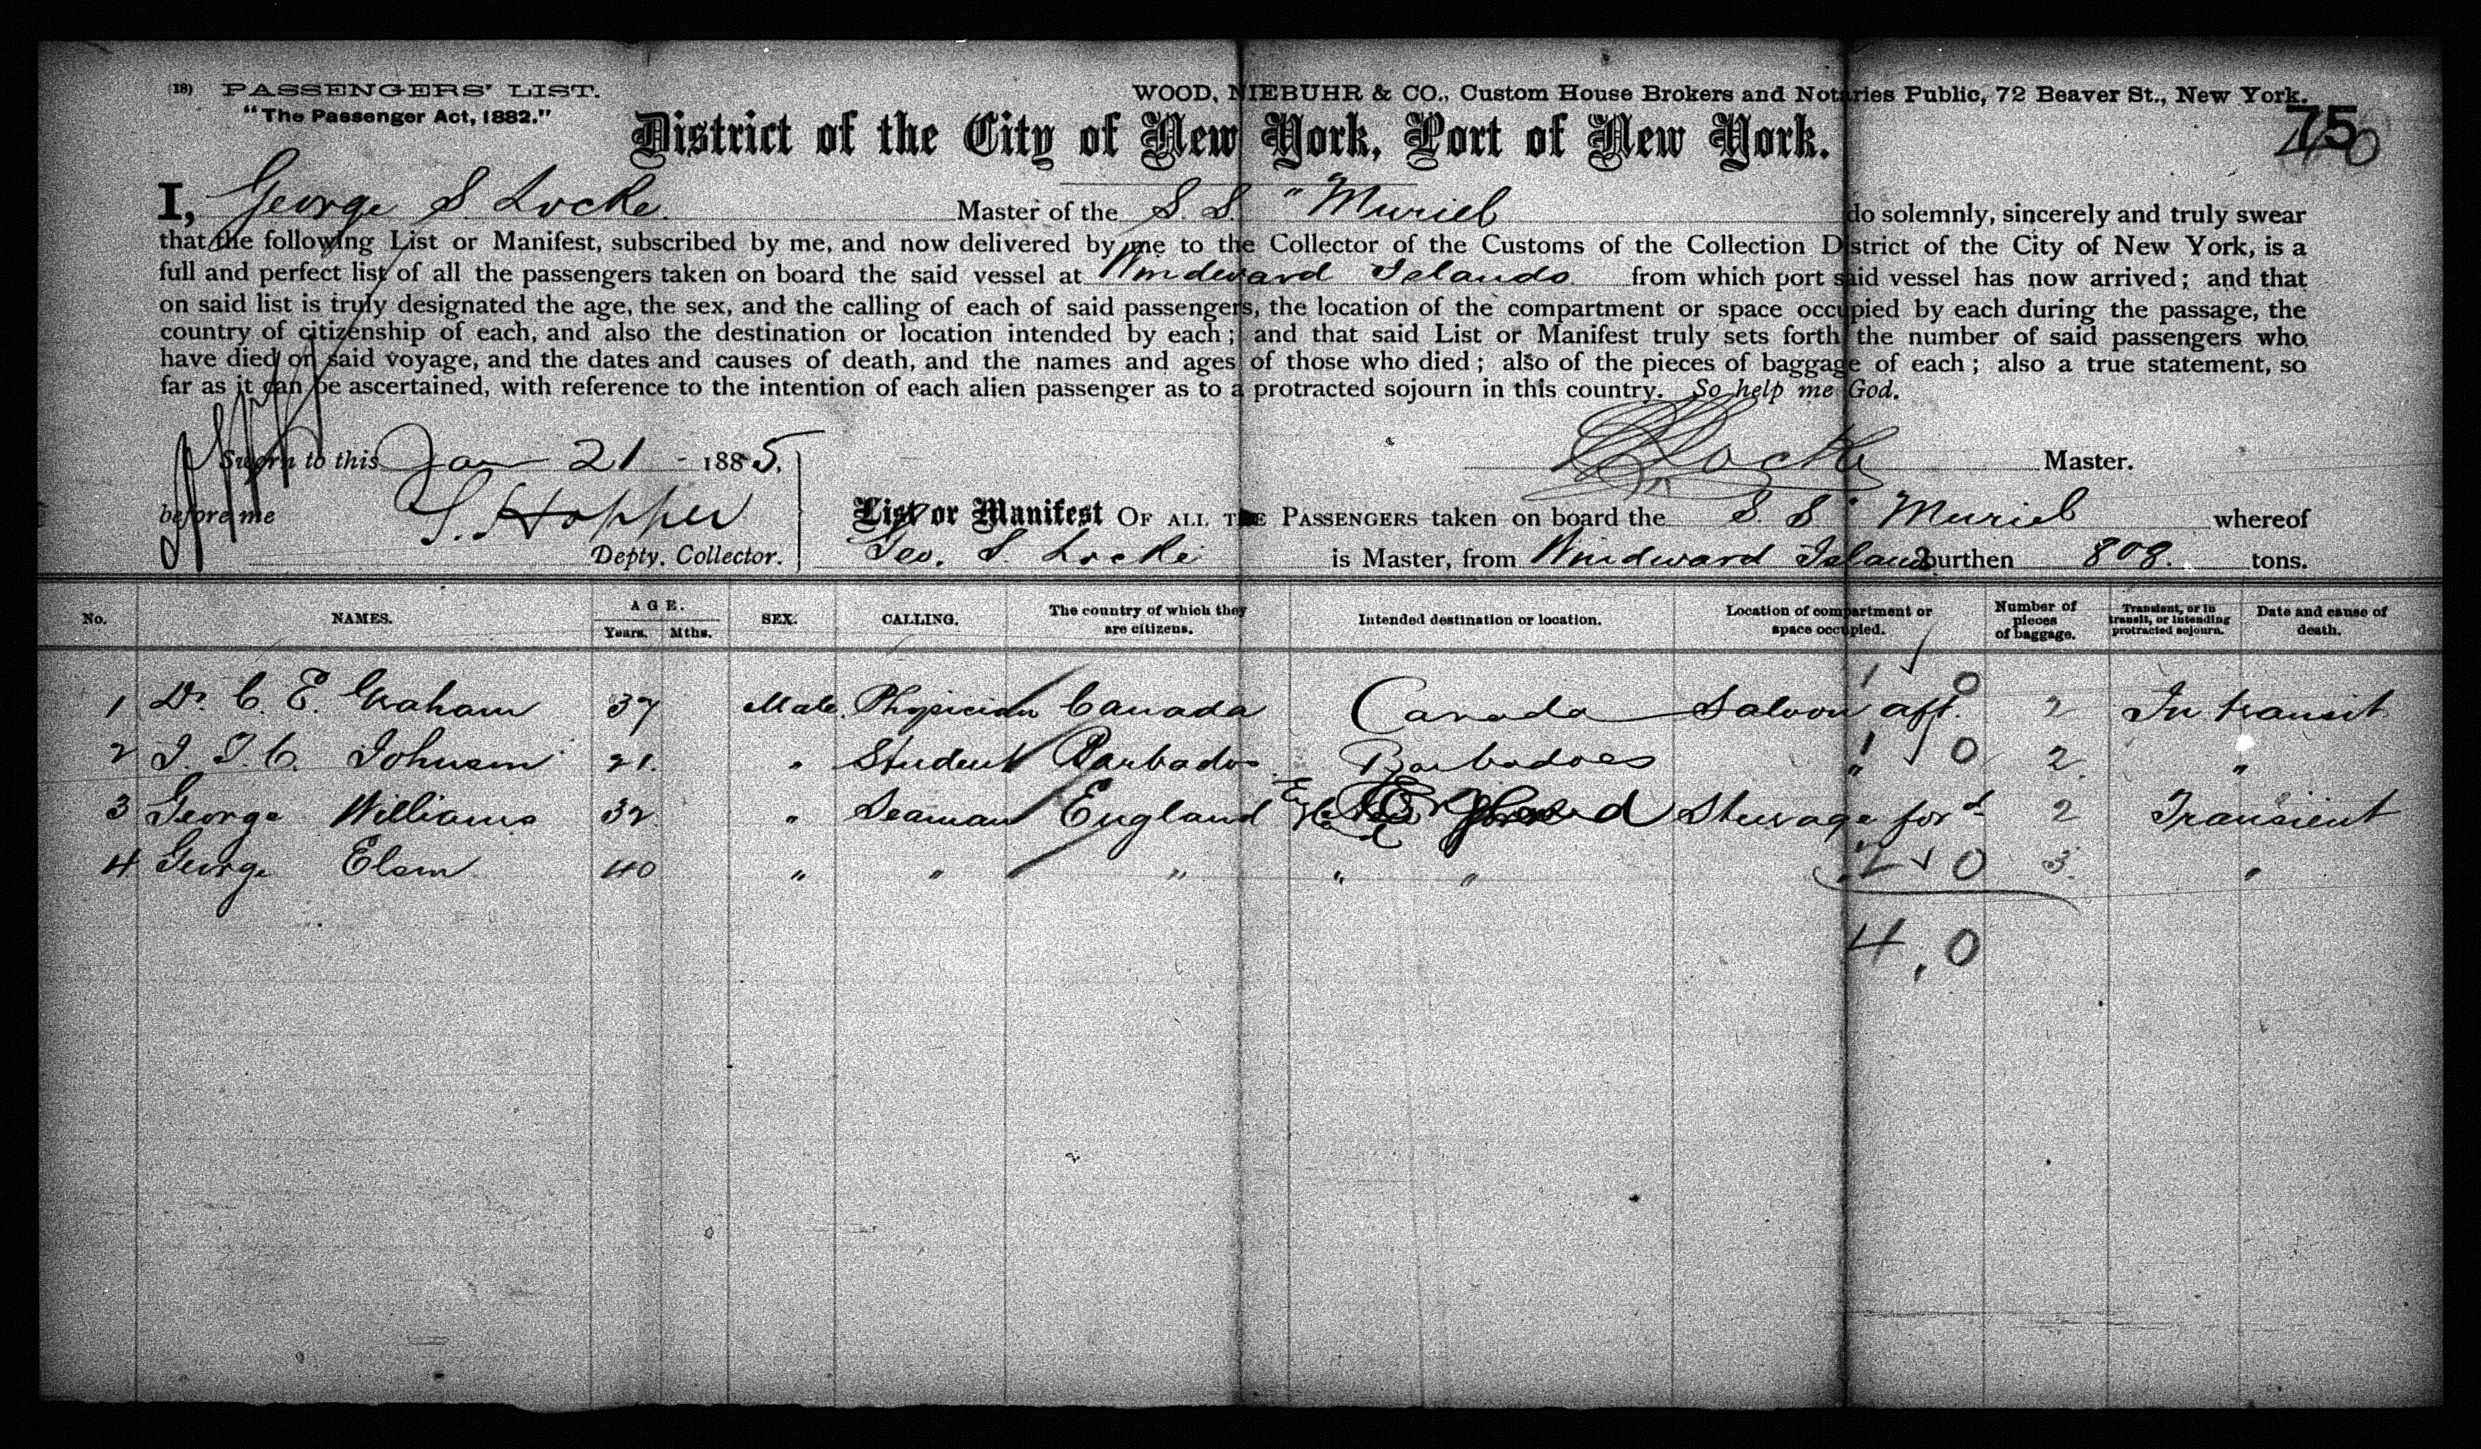 (18) PASSENGERS' LIST. WOOD, NIEBUHR & CO., Custom House Brokers and Notaries Public, 72 Beaver St., New York.
"The Passenger Act, 1882."
District of the City of New York, Port of New York. 75
I, George S. Locke Master of the S. S. "Muriel do solemnly, sincerely and truly swear
that the following List or Manifest, subscribed by me, and now delivered by me to the Collector of the Customs of the Collection District of the City of New York, is a
full and perfect list of all the passengers taken on board the said vessel at Windward Islands from which port said vessel has now arrived; and that
on said list is truly designated the age, the sex, and the calling of each of said passengers, the location of the compartment or space occupied by each during the passage, the
country of citizenship of each, and also the destination or location intended by each; and that said List or Manifest truly sets forth the number of said passengers who
have died on said voyage, and the dates and causes of death, and the names and ages of those who died; also of the pieces of baggage of each; also a true statement, so
far as it can be ascertained, with reference to the intention of each alien passenger as to a protracted sojourn in this country. So help me God.
Sworn to this Jan 21 - 1885, Locke Master.
before me S. Hopper List or Manifest OF ALL THE PASSENGERS taken on board the S. S. Muriel whereof
Depty. Collector. Geo. S. Locke is Master, from Windward Islands burthen 808. tons.
No. NAMES. AGE. Years. Mths. SEX. CALLING. The country of which they are citizens. Intended destination or location. Location of compartment or space occupied. Number of pieces of baggage. Transient, or in transit, or intending protracted sojourn. Date and cause of death.
1 Dr. C. E. Graham 37 Male. Physician Canada Canada Saloon aft. 1 0 2 In transit
2 J. T. C. Johnson 21. " Student Barbados Barbadoes " 1 0 2. "
3 George Williams 32 " Seaman England England Steerage for'd 2 Transient
4 George Elsm 40 " " " " " 2 0 3. "
4, 0